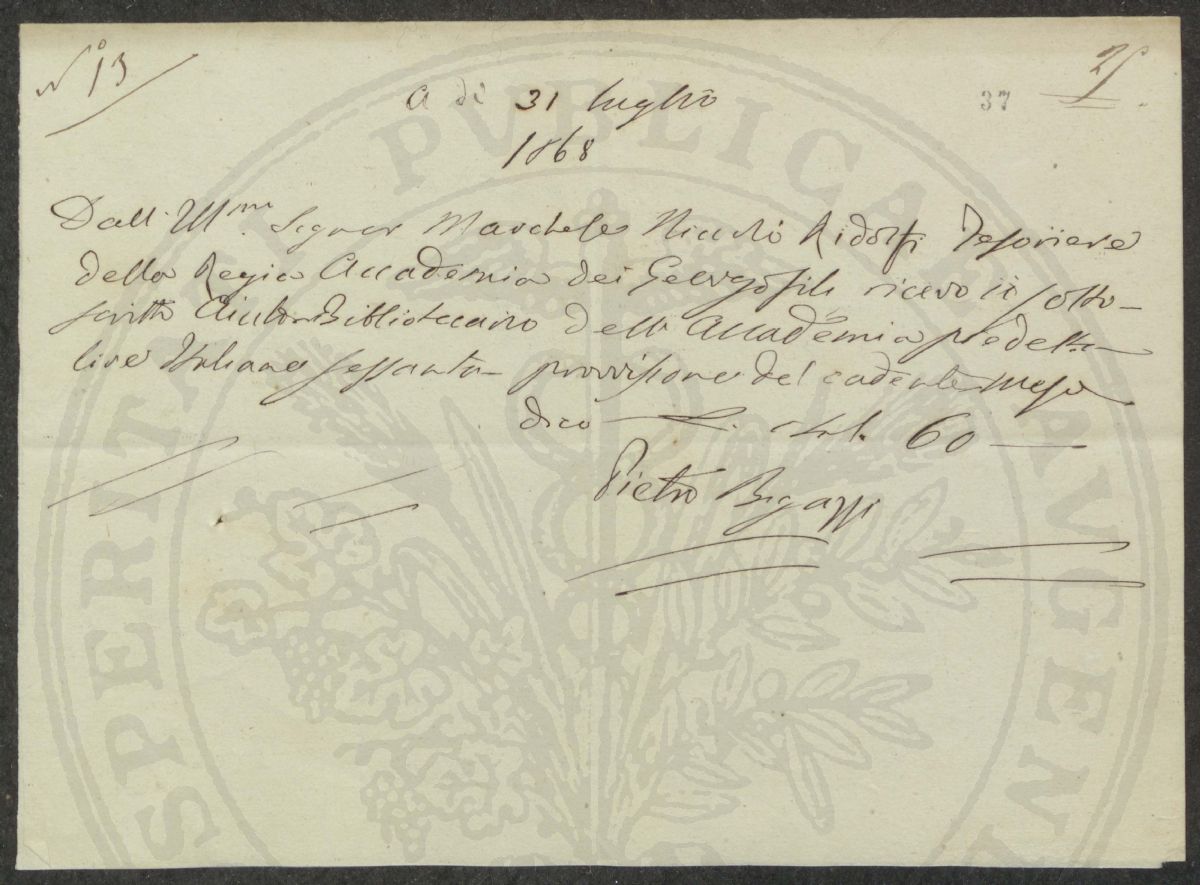 N° 13
37
A dì 31 luglio
1868
Dall' Ill.mo Signor Marchese Niccolò Ridolfi Tesoriere
della Regia Accademia dei Georgofili ricevo io sotto-
scritto Aiuto Bibliotecario dell' Accademia predetta
lire Italiane sessanta provvisione del cadente mese
dico L. Ital. 60
Pietro Bigazzi
PROSPERITATI PUBLICAE AUGENDAE